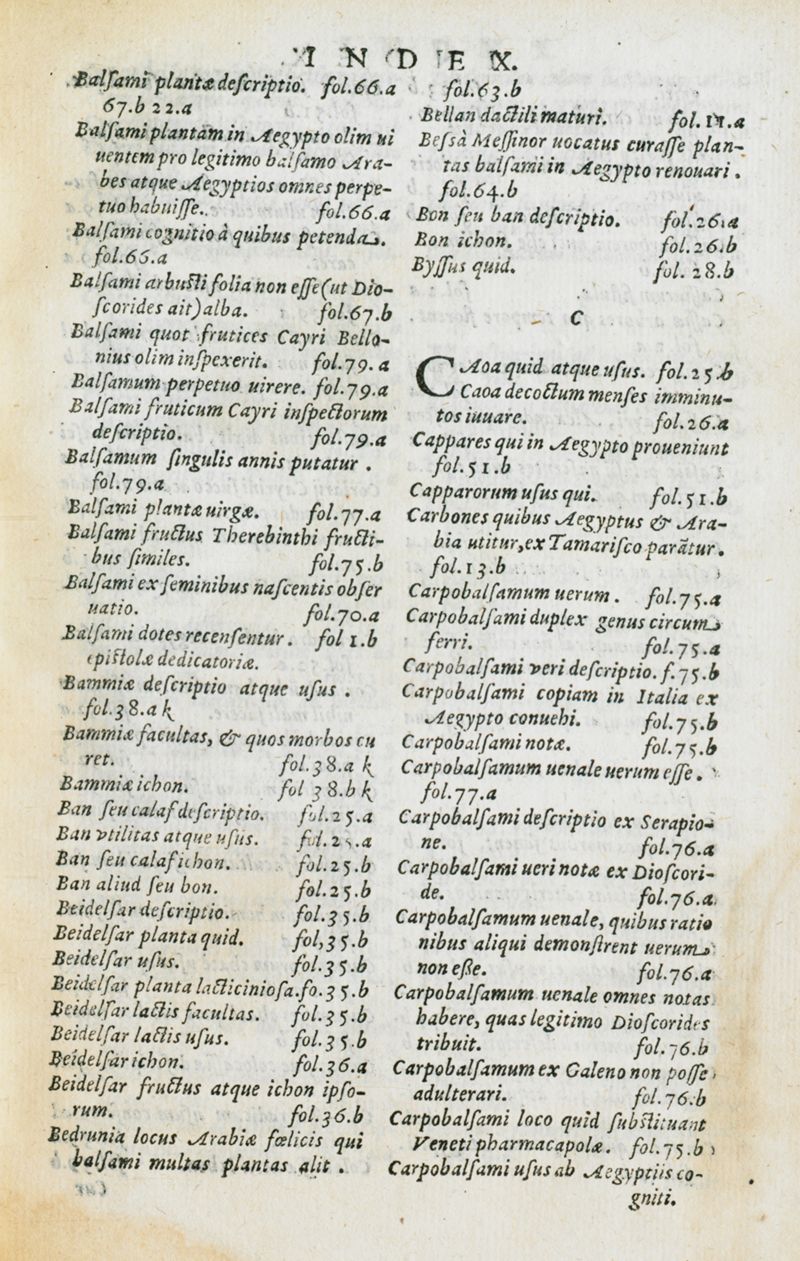 INDEX.
Balſami plantæ deſcriptio. fol.66.a
67.b 22.a
Balſami plantam in Aegypto olim ui
uentem pro legitimo balſamo Ara-
bes atque Aegyptios omnes perpe-
tuo habuiſſe. fol.66.a
Balſami cognitio à quibus petenda.
fol.66.a
Balſami arbuſti folia non eſſe (ut Dio-
ſcorides ait) alba. fol.67.b
Balſami quot frutices Cayri Bello-
nius olim inſpexerit. fol.79.a
Balſamum perpetuo uirere. fol.79.a
Balſami fruticum Cayri inſpectorum
deſcriptio. fol.79.a
Balſamum ſingulis annis putatur.
fol.79.a
Balſami plantæ uirgæ. fol.77.a
Balſami fructus Therebinthi fructi-
bus ſimiles. fol.75.b
Balſami ex ſeminibus naſcentis obſer
uatio. fol.70.a
Balſami dotes recenſentur. fol 1.b
epiſtolæ dedicatoriæ.
Bammiæ deſcriptio atque uſus.
fol.38.a k
Bammiæ facultas, & quos morbos cu
ret. fol.38.a k
Bammiæ ichon. fol 38.b k
Ban ſeu calaf deſcriptio. fol.25.a
Ban vtilitas atque uſus. fol.25.a
Ban ſeu calaf ichon. fol.25.b
Ban aliud ſeu bon. fol.25.b
Beidelſar deſcriptio. fol.35.b
Beidelſar planta quid. fol,35.b
Beidelſar uſus. fol.35.b
Beidelſar planta lacticinioſa. fo.35.b
Beidelſar lactis facultas. fol.35.b
Beidelſar lactis uſus. fol.35.b
Beidelſar ichon. fol.36.a
Beidelſar fructus atque ichon ipſo-
rum. fol.36.b
Bedrunia locus Arabiæ fœlicis qui
balſami multas plantas alit.
fol.63.b
Bellan dactili maturi. fol. 11.a
Beſsà Meſſinor uocatus curaſſe plan-
tas balſami in Aegypto renouari.
fol.64.b
Bon ſeu ban deſcriptio. fol.26.a
Bon ichon. fol.26.b
Byſſus quid. fol. 28.b
C
CAoa quid atque uſus. fol.25.b
Caoa decoctum menſes imminu-
tos iuuare. fol.26.a
Cappares qui in Aegypto proueniunt
fol.51.b
Capparorum uſus qui. fol.51.b
Carbones quibus Aegyptus & Ara-
bia utitur, ex Tamariſco parātur.
fol.13.b
Carpobalſamum uerum. fol.75.a
Carpobalſami duplex genus circum
ferri. fol.75.a
Carpobalſami veri deſcriptio. f.75.b
Carpobalſami copiam in Italia ex
Aegypto conuehi. fol.75.b
Carpobalſami notæ. fol.75.b
Carpobalſamum uenale uerum eſſe.
fol.77.a
Carpobalſami deſcriptio ex Serapio-
ne. fol.76.a
Carpobalſami ueri notæ ex Dioſcori-
de. fol.76.a.
Carpobalſamum uenale, quibus ratio
nibus aliqui demonſtrent uerum
non eße. fol.76.a
Carpobalſamum uenale omnes notas
habere, quas legitimo Dioſcorides
tribuit. fol.76.b
Carpobalſamum ex Galeno non poſſe
adulterari. fol.76.b
Carpobalſami loco quid ſubſtituant
Veneti pharmacapolæ. fol.75.b
Carpobalſami uſus ab Aegyptiis co-
gniti.